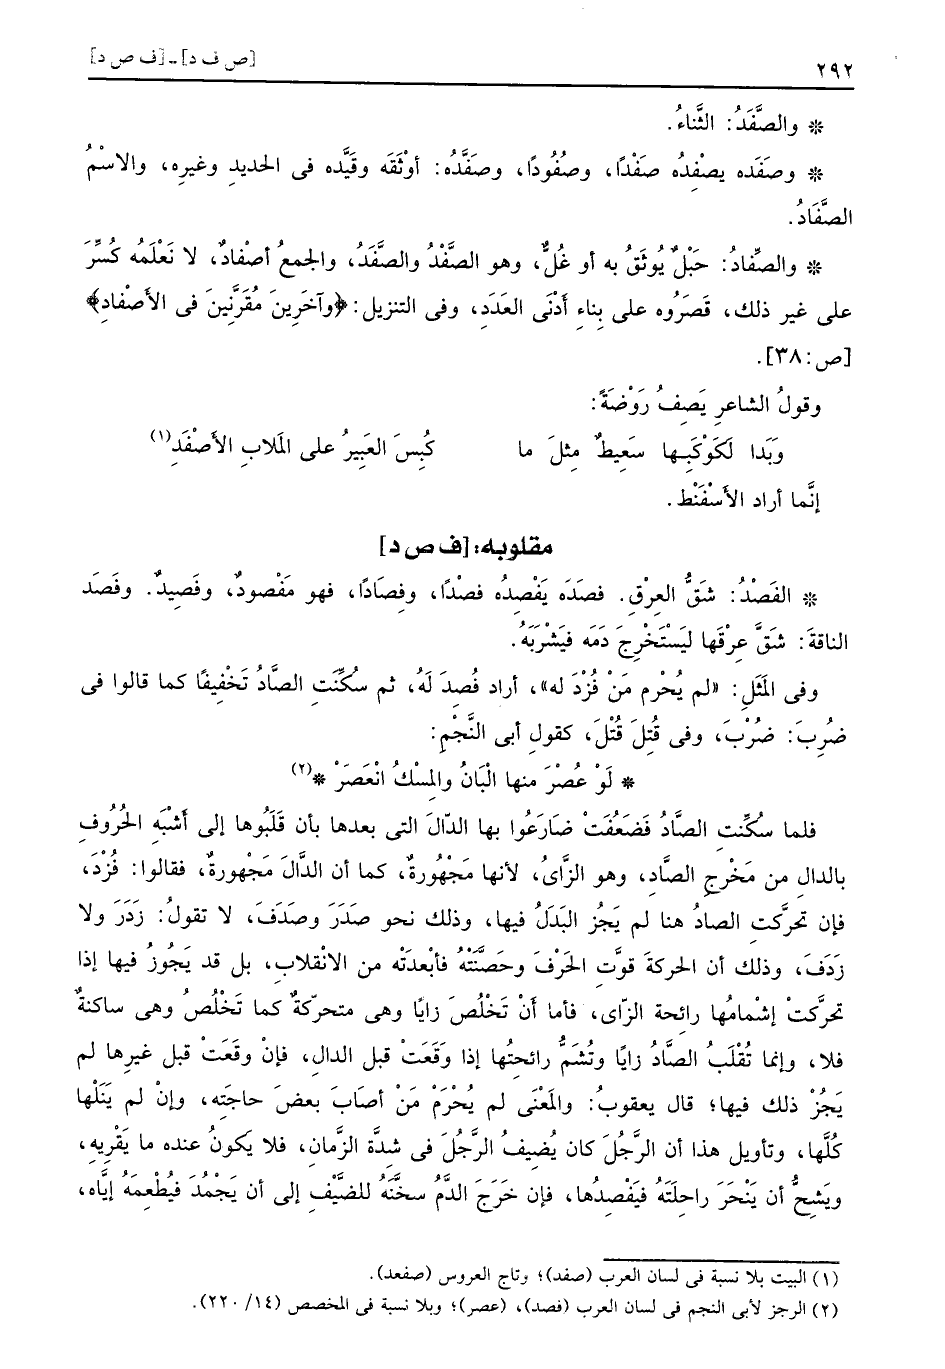 ٢٩٢ [ص ف د] ـ [ف ص د]
* والصَّفَدُ: الثَّناءُ.
* وصَفَده يصْفِدُه صَفْدًا، وصُفُودًا، وصفَّدُه: أوْثَقَه وقَيَّده فى الحديدِ وغيرِه، والاسْمُ
الصَّفَادُ.
* والصِّفادُ: حَبْلٌ يُوثَقُ به أو غُلٌّ، وهو الصَّفْدُ والصَّفَدُ، والجمعُ أصْفادٌ، لا نَعْلَمُه كُسِّرَ
على غير ذلك، قَصَرُوه على بِناءِ أدْنَى العَدَدِ، وفى التنزيل: ﴿وآخَرِينَ مُقَرَّنِينَ فى الأصْفادِ﴾
[ص: ٣٨].
وقولُ الشاعرِ يَصِفُ رَوْضَةً:
وَبَدا لَكَوْكَبِها سَعِيطٌ مِثلَ ما كُبِسَ العَبِيرُ على المَلابِ الأَصْفَدِ(١)
إنَّما أراد الأَسْفَنْط.
مقلوبه: [ف ص د]
* الفَصْدُ: شَقُّ العِرْقِ. فصَدَه يَفْصِدُه فصْدًا، وفِصَادًا، فهو مَفْصودٌ، وفَصِيدٌ. وفَصَد
الناقةَ: شقَّ عِرْقَها ليَسْتَخْرِجَ دَمَه فيَشْرَبَهُ.
وفى المَثَلِ: «لم يُحْرِم مَنْ فُزْدَ له»، أراد فُصِدَ لَهُ، ثم سكِّنَت الصَّادُ تَخْفِيفًا كما قالوا فى
ضُرِبَ: ضُرْبَ، وفى قُتِلَ قُتْلَ، كقولِ أبى النَّجْمِ:
* لَوْ عُصْرَ منها الْبَانُ والمِسْكُ انْعَصَرْ *(٢)
فلما سكِّنت الصَّادُ فَضَعُفَتْ ضارَعُوا بها الدّالَ التى بعدها بأن قَلَبُوها إلى أشْبَهِ الحُرُوفِ
بالدال من مَخْرِجِ الصَّادِ، وهو الزَّاىُ، لأنها مَجْهُورةٌ، كما أن الدَّالَ مَجْهورةٌ، فقالوا: فُزْدَ،
فإن تحرَّكت الصادُ هنا لم يَجُز البَدَلُ فيها، وذلك نحو صَدَرَ وصَدَفَ، لا تقولُ: زَدَرَ ولا
زَدَفَ، وذلك أن الحركةَ قوَّتِ الحَرْفَ وحَصَّنَتْهُ فأبْعدَتْه من الانْقلابِ، بل قد يَجُوزُ فيها إذا
تحرَّكتْ إشْمامُها رائحة الزّاى، فأما أنْ تَخْلُصَ زايًا وهى متحرّكةٌ كما تَخْلُصُ وهى ساكنةٌ
فلا، وإنما تُقْلَبُ الصَّادُ زايًا وتُشَمُّ رائحتُها إذا وَقَعَتْ قبل الدال، فإنْ وقَعَتْ قبل غيرِها لم
يَجُزْ ذلك فيها؛ قال يعقوبُ: والمَعْنَى لم يُحْرَمْ مَنْ أصَابَ بعضَ حاجَتِه، وإنْ لم يَنَلْها
كُلَّها، وتأويل هذا أن الرَّجُلَ كان يُضِيفُ الرَّجُلَ فى شدَّة الزَّمان، فلا يَكونُ عنده ما يَقْرِيهِ،
ويَشِحُّ أن يَنْحَرَ راحِلَتَهُ فيَفْصِدُها، فإن خَرَجَ الدَّمُ سخَّنَهُ للضَّيْفِ إلى أن يَجْمُدَ فيُطْعِمَهُ إيَّاه،
(١) البيت بلا نسبة فى لسان العرب (صفد)؛ وتاج العروس (صفعد).
(٢) الرجز لأبى النجم فى لسان العرب (فصد)، (عصر)؛ وبلا نسبة فى المخصص (١٤/ ٢٢٠).